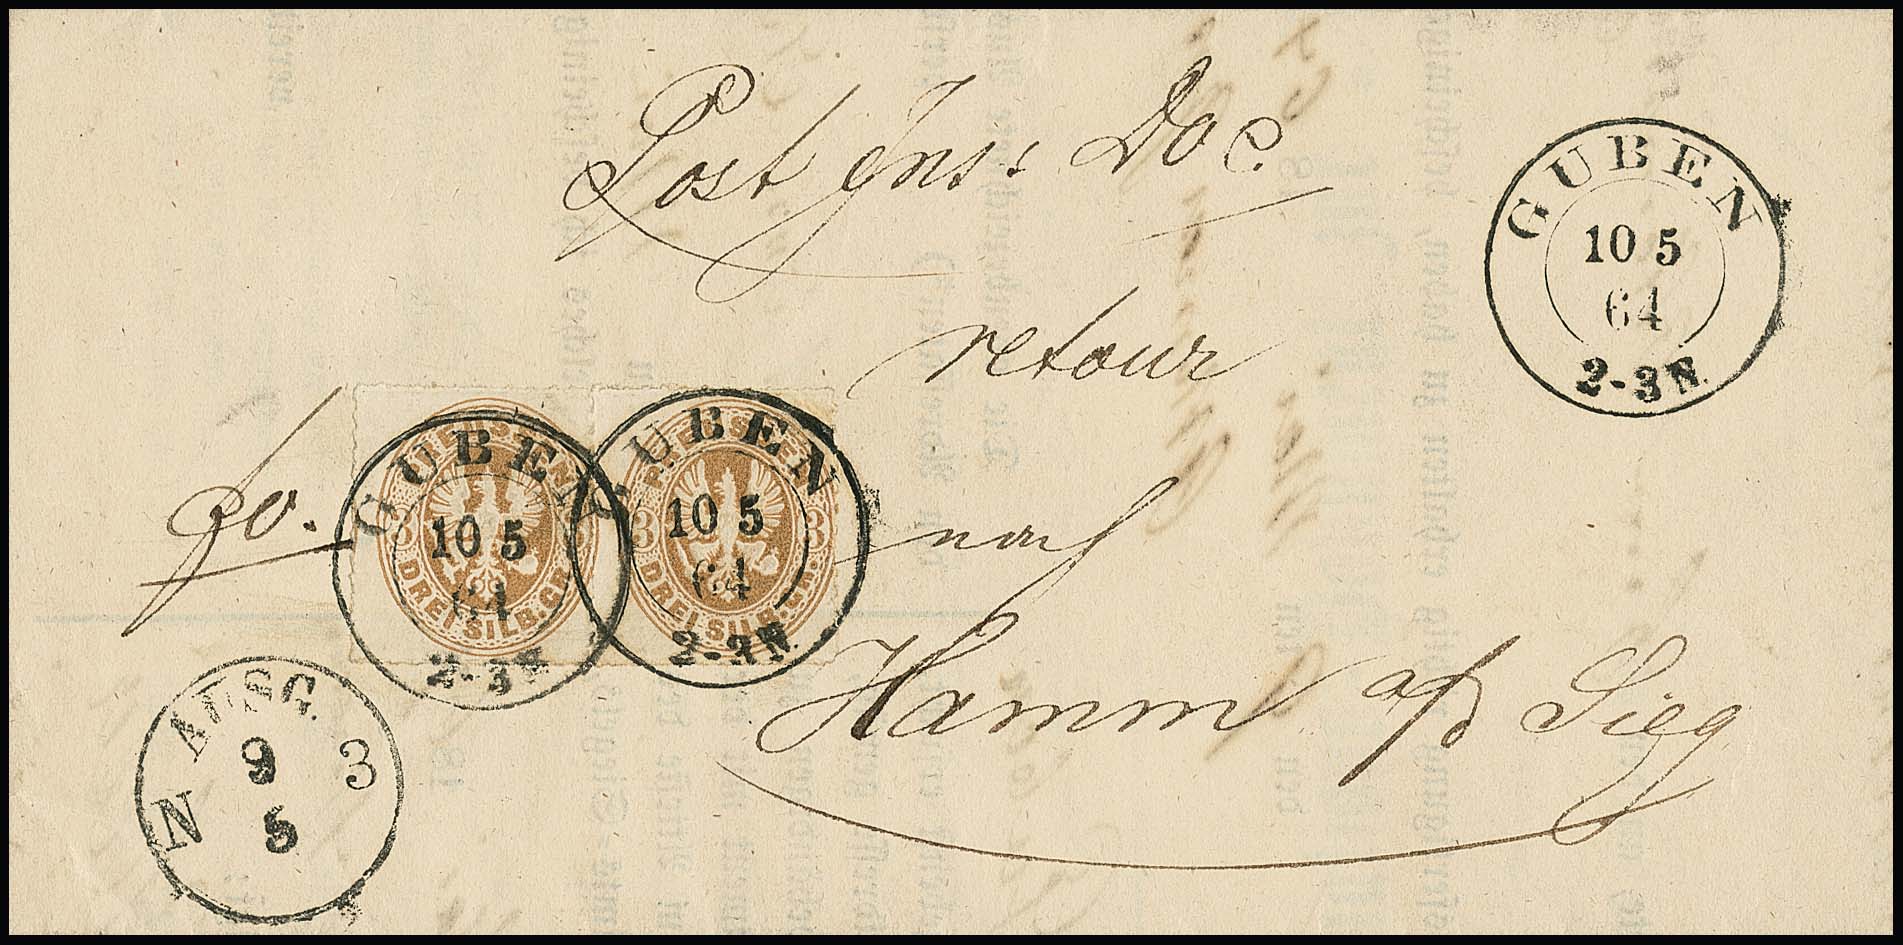 Post Ins: Doc.
GUBEN
10 5
64
2-3N.
retour
fo.
PREUSSEN
3 3
DREI SILB.GR.
GUBEN
10 5
64
2-3N
PREUSSEN
3 3
DREI SILB.GR.
GUBEN
10 5
64
2-3N.
nach
Hamm a/d Sieg
AUSG.
9
5
N 3